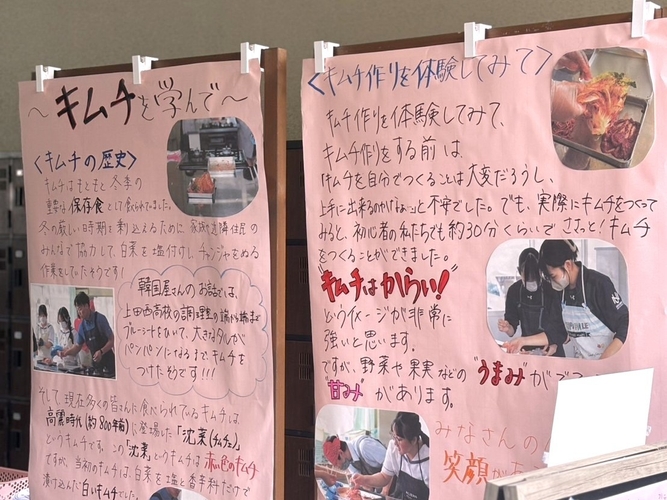 ～キムチを学んで～
〈キムチの歴史〉
キムチはもともと冬季の
重要な保存食として食べられてました。
冬の厳しい時期を乗り込えるために家族や近隣住民の
みんなで協力して、白菜を塩付けし、チャンジャをぬる
作業をしていたそうです！
韓国屋さんのお話では、
上田西高校の調理室の端から端まで
ブルーシートをひいて、大きなタルが
パンパンになるまでキムチを
つけたそうです!!!
そして現在多くの皆さんに食べられているキムチは、
高麗時代(約800年前)に登場した「沈菜(チムチェ)」
というキムチです。この「沈菜」というキムチは赤い色のキムチ
ですが、当初のキムチは、白菜を塩と香辛料だけで
漬け込んだ白いキムチでした。
〈キムチ作りを体験してみて〉
キムチ作りを体験してみて、
キムチ作りをする前は、
「キムチを自分でつくることは大変だろうし、
上手に出来るのかなぁ…」と不安でした。でも、実際にキムチをつくって
みると、初心者の私たちでも約30分くらいでささっと！キムチ
をつくることができました。
"キムチはからい！"
というイメージが非常に
強いと思います。
ですが、野菜や果実などの"うまみ"がで
"甘み"があります。
みなさんの
笑顔が